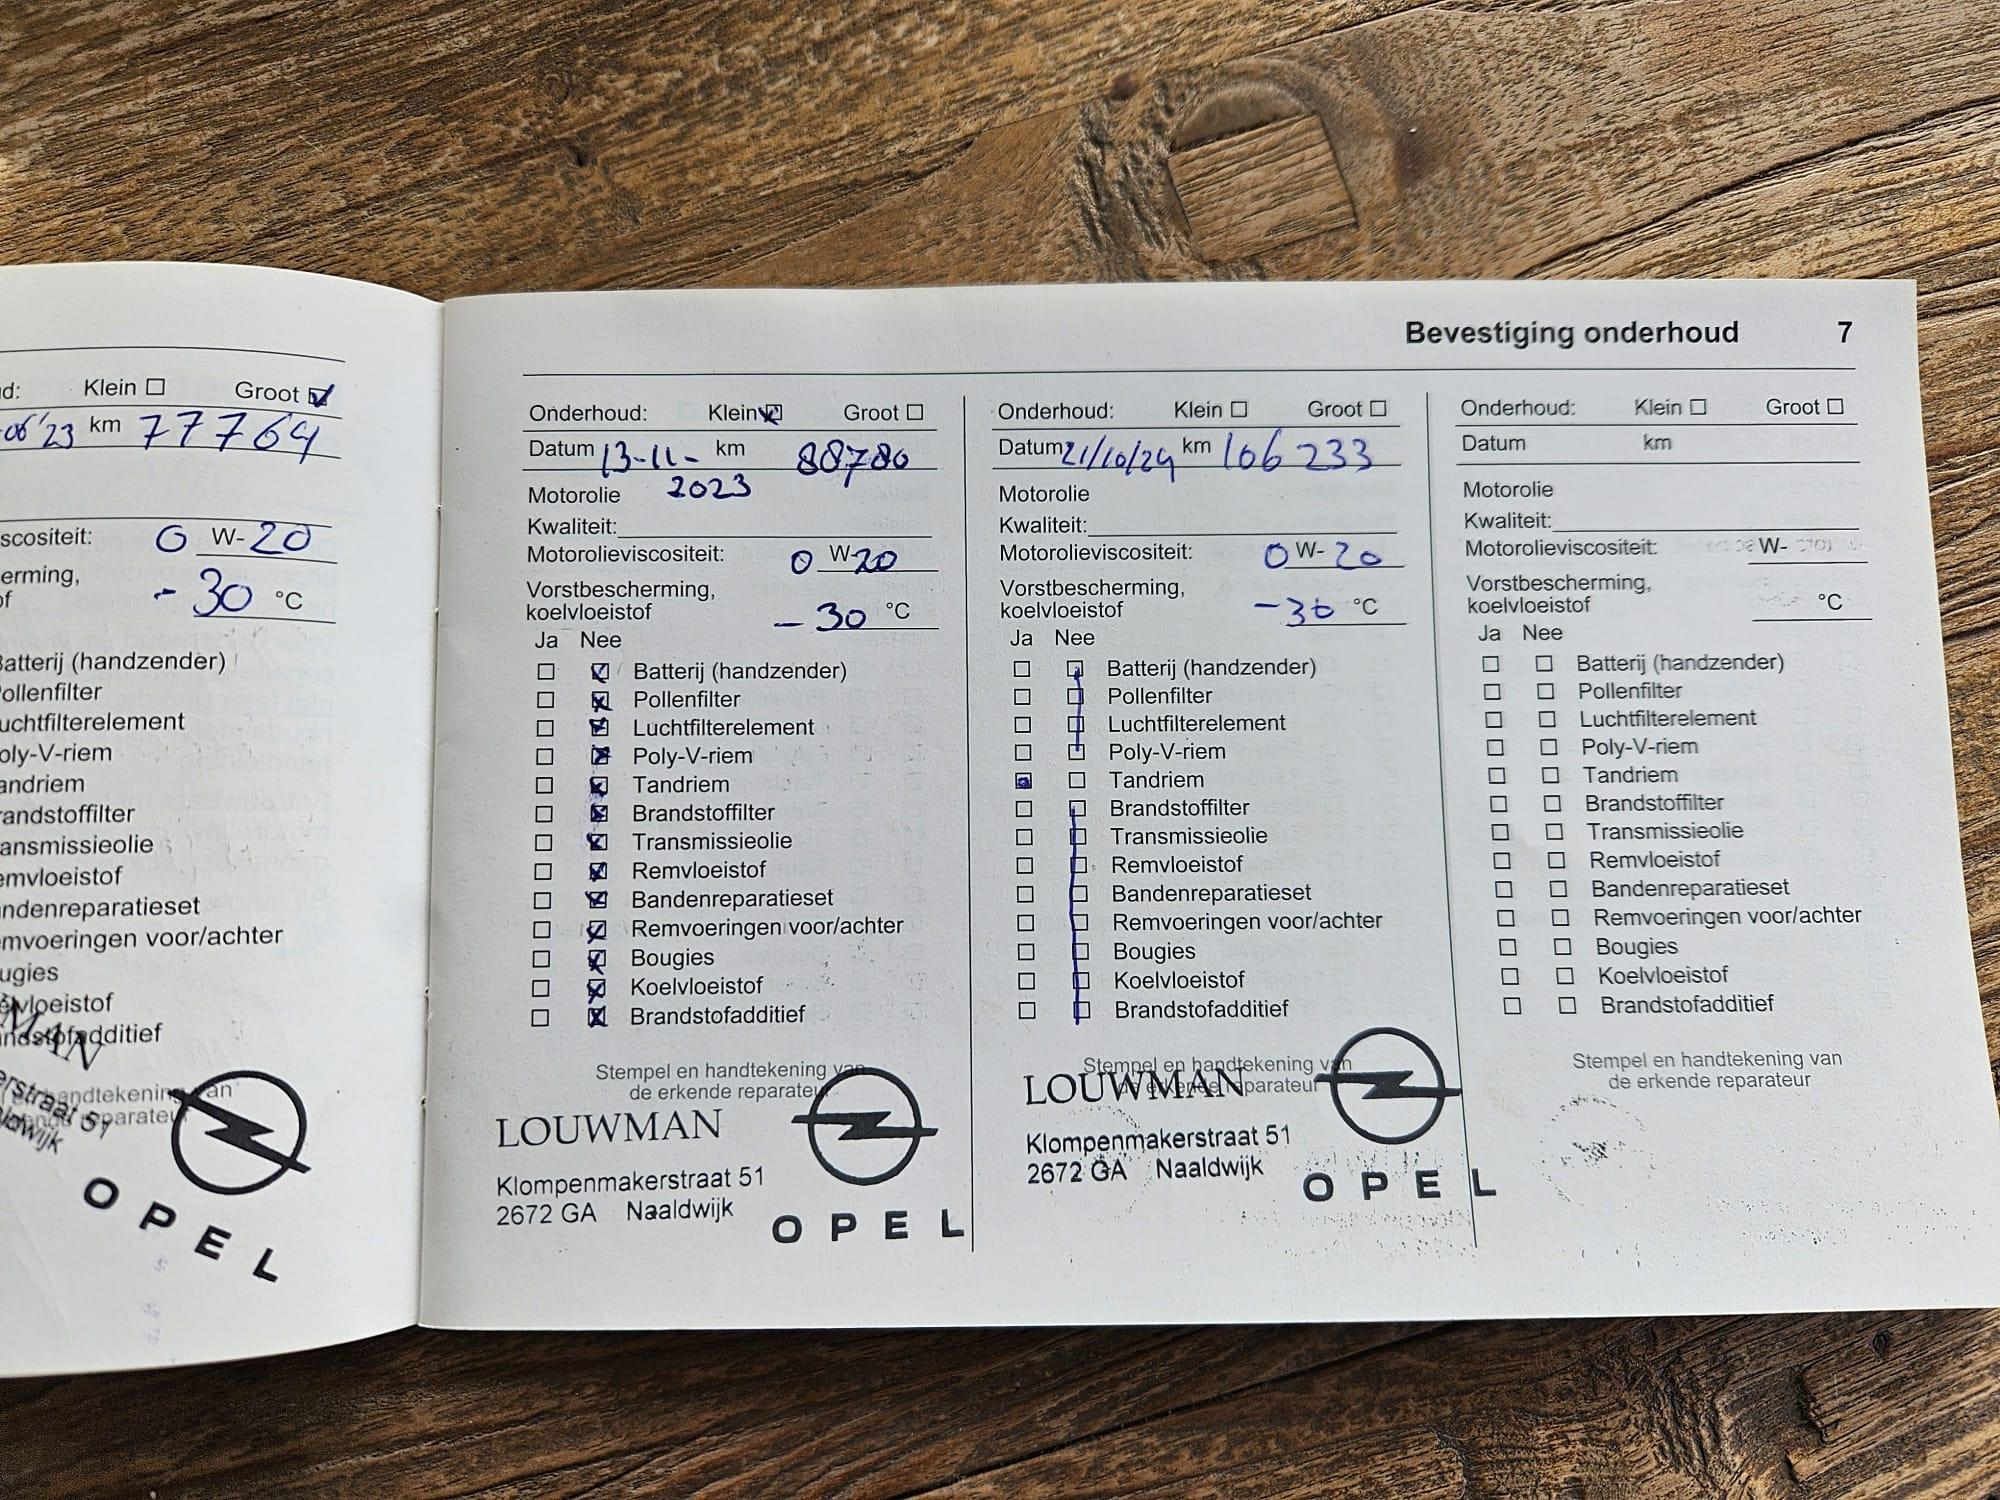 Klein Groot
km 77764
W-20
0
- 30 °C
Batterij (handzender)
Pollenfilter
Luchtfilterelement
Poly-V-riem
Tandriem
Brandstoffilter
Transmissieolie
Remvloeistof
Bandenreparatieset
Remvoeringen voor/achter
Bougies
Koelvloeistof
Brandstofadditief
OPEL
Bevestiging onderhoud 7
Onderhoud: Klein Groot
Datum 13-11- km 88780
2023
Motorolie
Kwaliteit:
Motorolieviscositeit: 0 W-20
Vorstbescherming,
koelvloeistof - 30 °C
Ja Nee
Batterij (handzender)
Pollenfilter
Luchtfilterelement
Poly-V-riem
Tandriem
Brandstoffilter
Transmissieolie
Remvloeistof
Bandenreparatieset
Remvoeringen voor/achter
Bougies
Koelvloeistof
Brandstofadditief
Stempel en handtekening van
de erkende reparateur
LOUWMAN
Klompenmakerstraat 51
2672 GA Naaldwijk
OPEL
Onderhoud: Klein Groot
Datum 21/10/24 km 106 233
Motorolie
Kwaliteit:
Motorolieviscositeit: 0 W-20
Vorstbescherming,
koelvloeistof -30 °C
Ja Nee
Batterij (handzender)
Pollenfilter
Luchtfilterelement
Poly-V-riem
Tandriem
Brandstoffilter
Transmissieolie
Remvloeistof
Bandenreparatieset
Remvoeringen voor/achter
Bougies
Koelvloeistof
Brandstofadditief
Stempel en handtekening van
de erkende reparateur
LOUWMAN
Klompenmakerstraat 51
2672 GA Naaldwijk
OPEL
Onderhoud: Klein Groot
Datum km
Motorolie
Kwaliteit:
Motorolieviscositeit: W-
Vorstbescherming,
koelvloeistof °C
Ja Nee
Batterij (handzender)
Pollenfilter
Luchtfilterelement
Poly-V-riem
Tandriem
Brandstoffilter
Transmissieolie
Remvloeistof
Bandenreparatieset
Remvoeringen voor/achter
Bougies
Koelvloeistof
Brandstofadditief
Stempel en handtekening van
de erkende reparateur